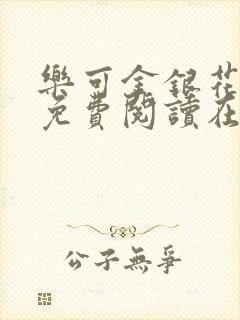 樂可金銀花
免費閱讀在
公子無爭